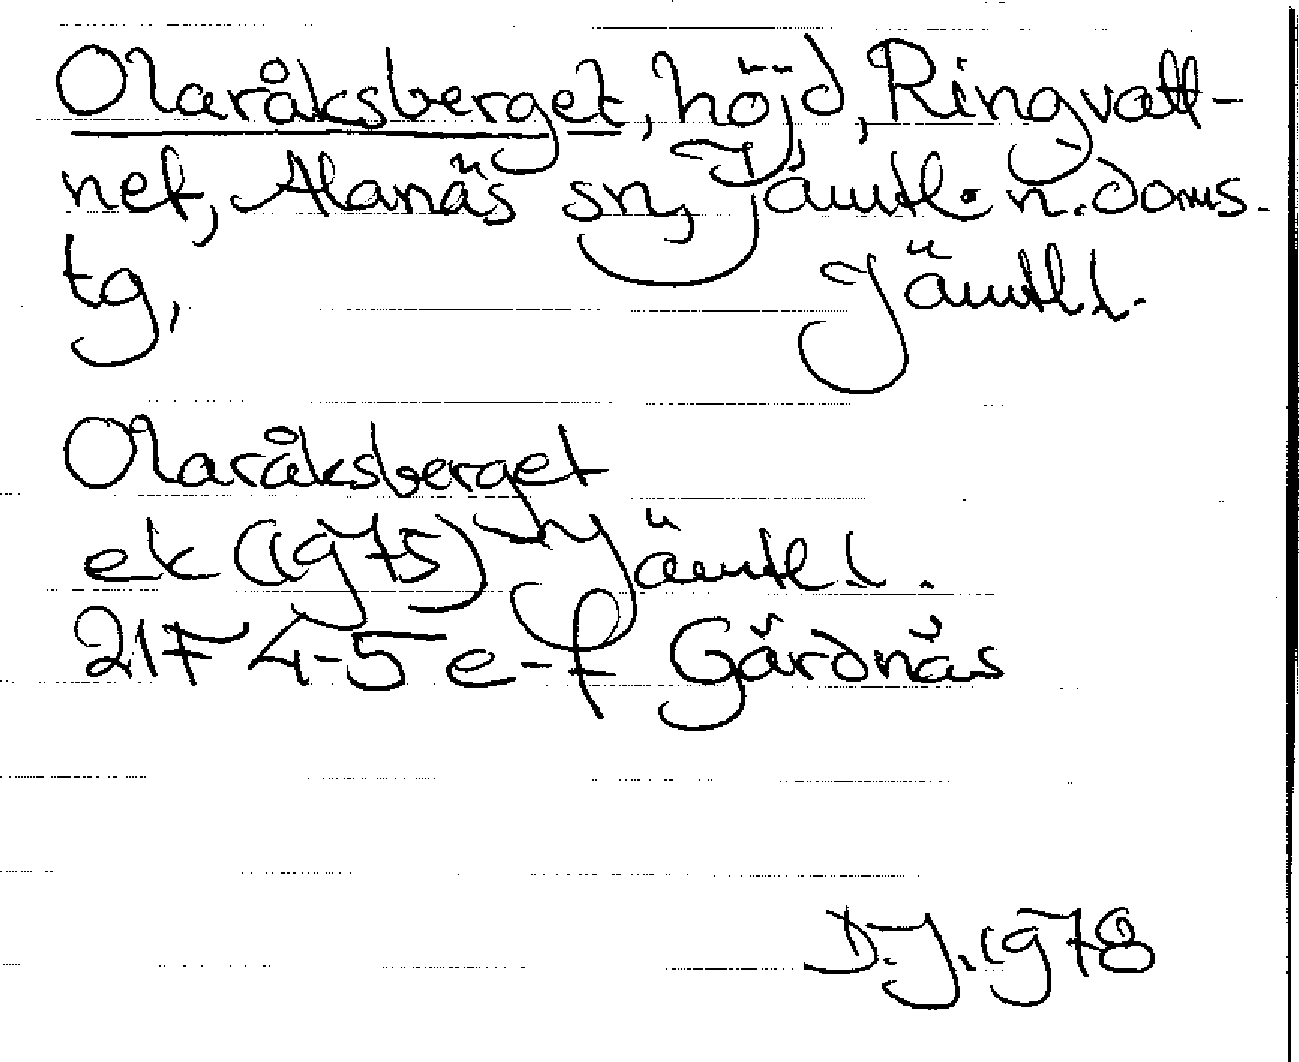 Olaråksberget, höjd, Ringvatt-
net, Alanäs sn, Jämtl. n. doms.
tg, Jämtl l.
Olaråksberget
ek (1975) Jämtl l.
21F 4-5 e-f Gärdnäs
D.J. 1978